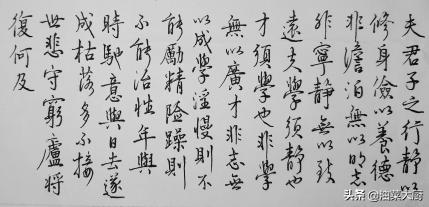 夫君子之行靜以
修身儉以養德
非澹泊無以明志
非寧靜無以致
遠夫學須靜也
才須學也非學
無以廣才非志無
以成學淫慢則不
能勵精險躁則
不能治性年與
時馳意與日去遂
成枯落多不接
世悲守窮廬將
復何及
头条 @油菜大厨